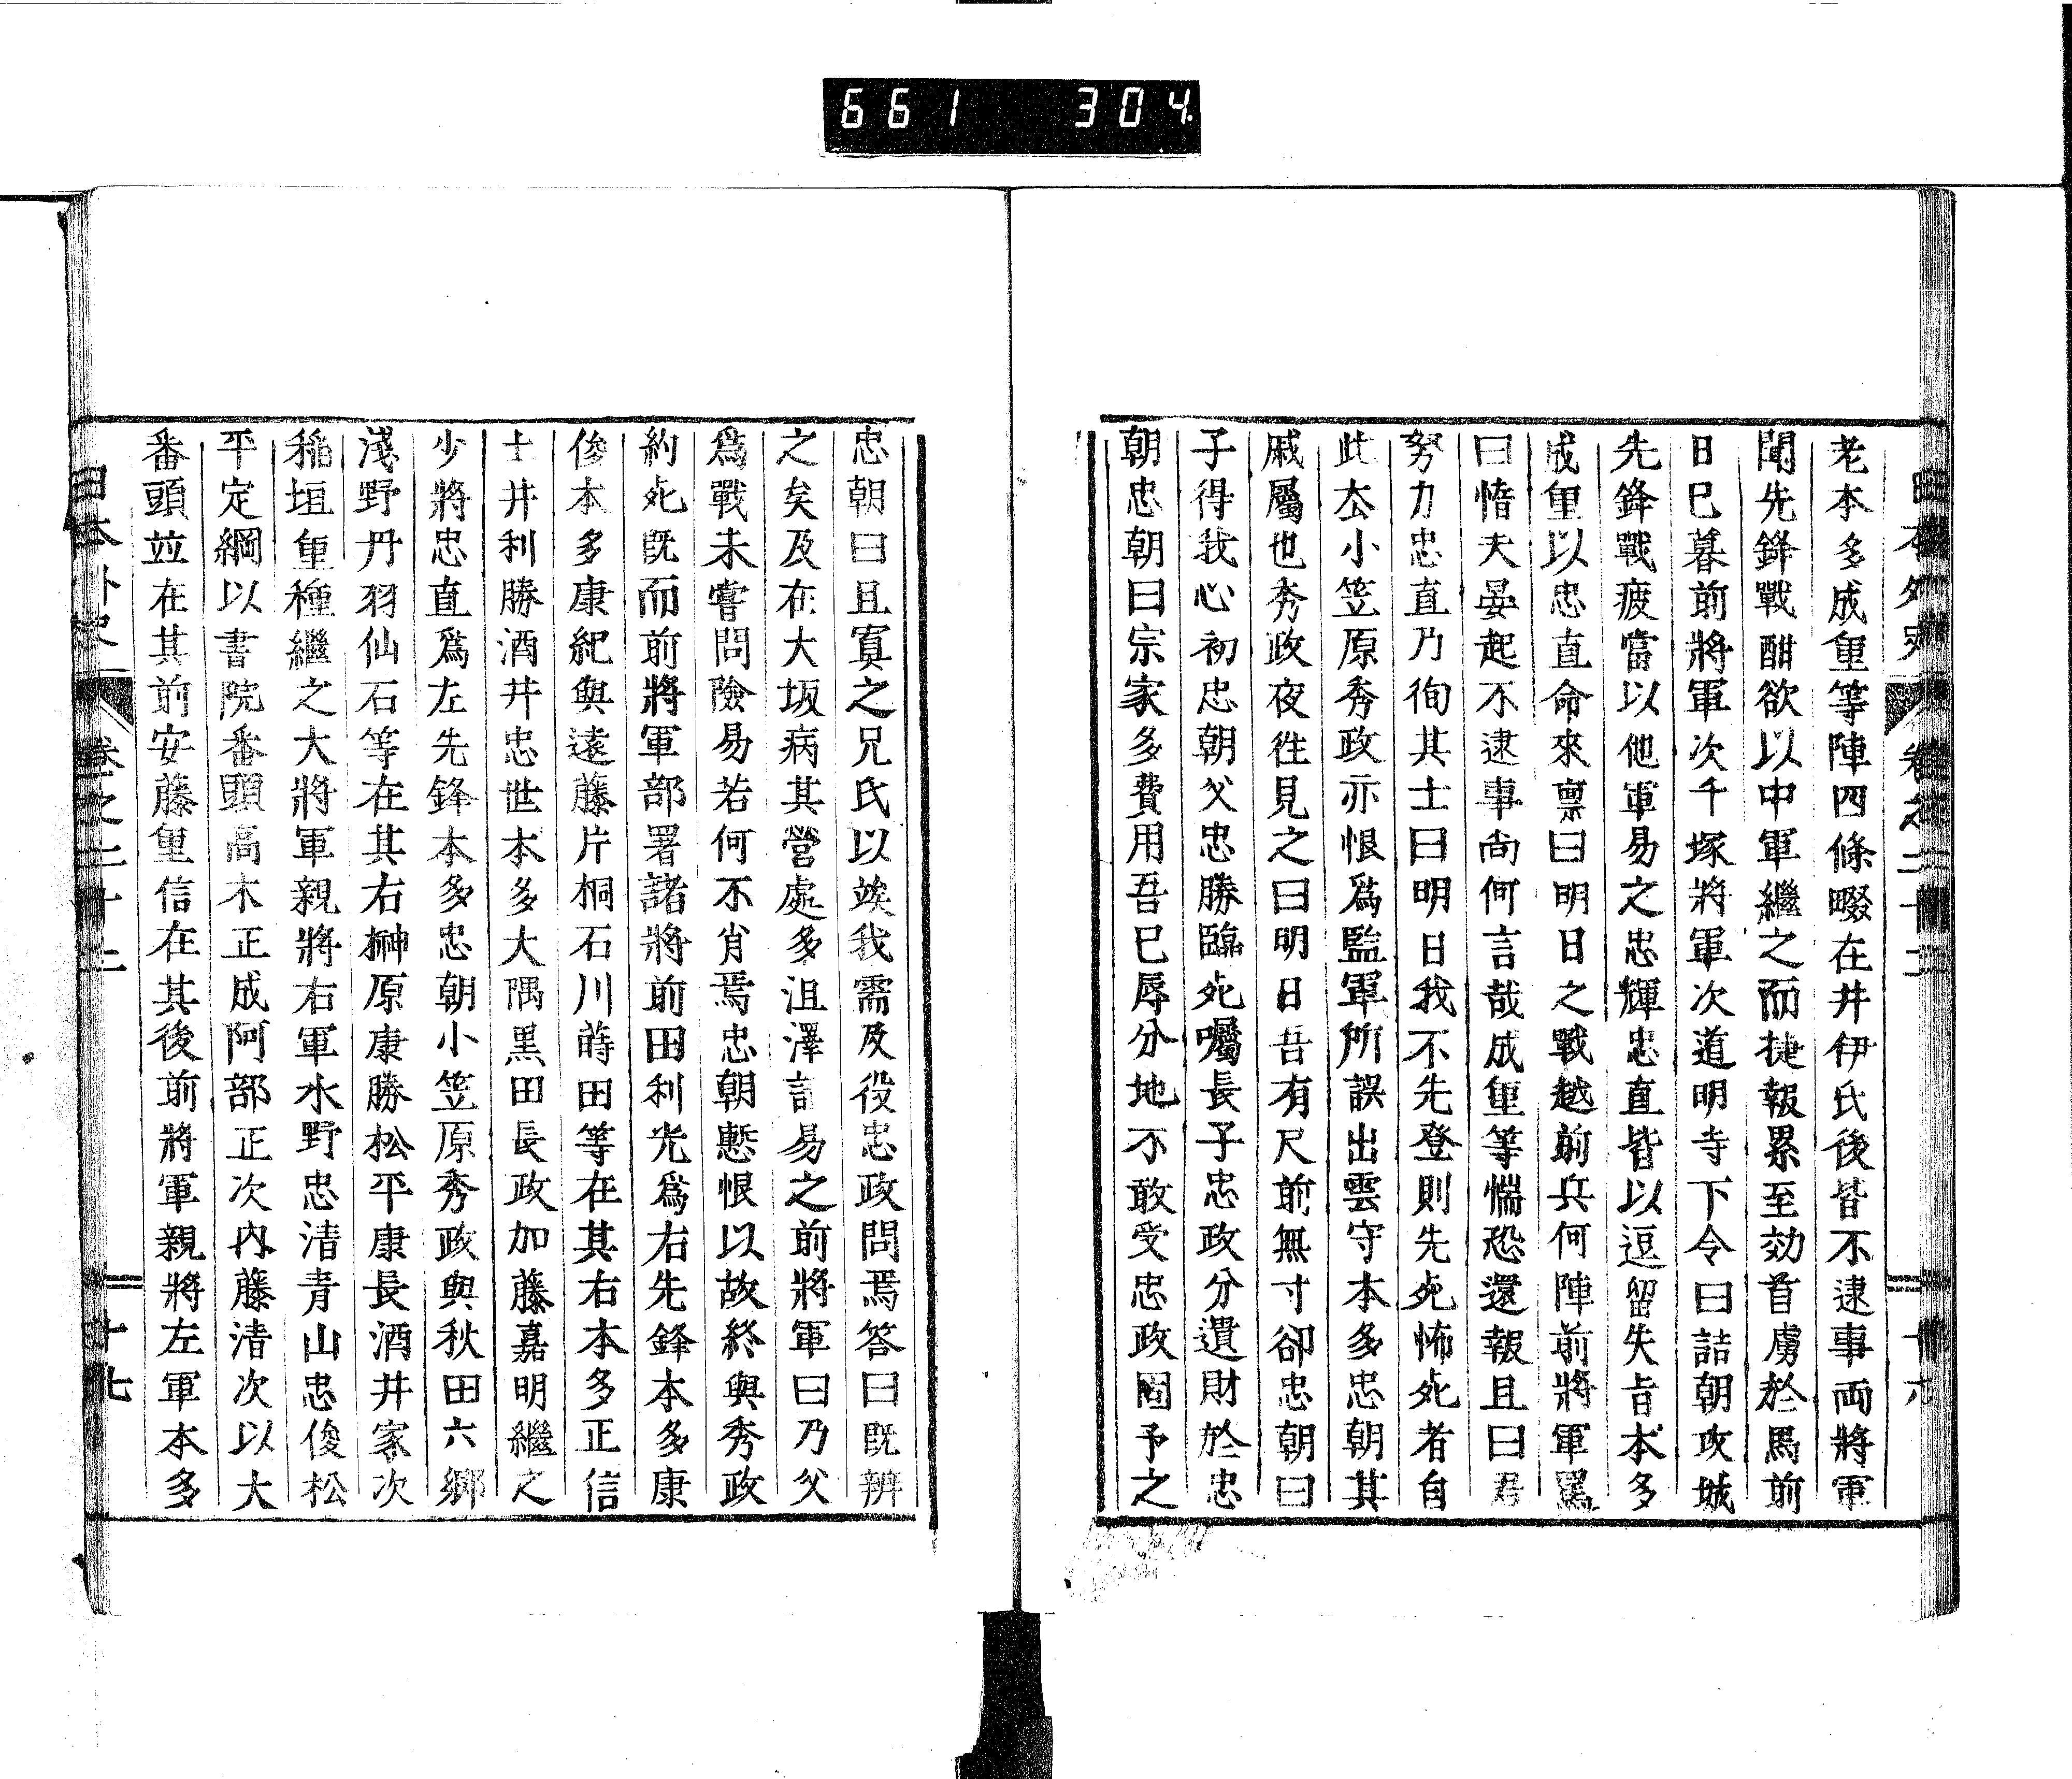 661 304
日本外史 卷之二十二 十六
老本多成重等陣四條畷在井伊氏後皆不逮事両將軍
聞先鋒戰酣欲以中軍繼之而捷報累至効首虜於馬前
日已暮前將軍次千塚將軍次道明寺下令曰詰朝攻城
先鋒戰疲當以他軍易之忠輝忠直皆以逗留失㫖本多
成重以忠直命來禀曰明日之戰越前兵何陣前將軍罵
曰惰夫晏起不逮事尚何言哉成重等惴恐還報且曰君
努力忠直乃徇其士曰明日我不先登則先死怖死者自
此去小笠原秀政亦恨爲監軍所誤出雲守本多忠朝其
戚屬也秀政夜往見之曰明日吾有尺前無寸卻忠朝曰
子得我心初忠朝父忠勝臨死囑長子忠政分遺財於忠
朝忠朝曰宗家多費用吾已辱分地不敢受忠政固予之
忠朝曰且寘之兄氏以竢我需及役忠政問焉答曰既辨
之矣及在大坂病其營處多沮澤請易之前將軍曰乃父
爲戰未嘗問險易若何不肖焉忠朝慙恨以故終與秀政
約死既而前將軍部署諸將前田利光爲右先鋒本多康
俊本多康紀與遠藤片桐石川蒔田等在其右本多正信
土井利勝酒井忠世本多大隅黒田長政加藤嘉明繼之
少將忠直爲左先鋒本多忠朝小笠原秀政與秋田六郷
淺野丹羽仙石等在其右榊原康勝松平康長酒井家次
稲垣重種繼之大將軍親將右軍水野忠清青山忠俊松
平定綱以書院番頭高木正成阿部正次内藤清次以大
番頭竝在其前安藤重信在其後前將軍親將左軍本多
日本外史 卷之二十二 十七